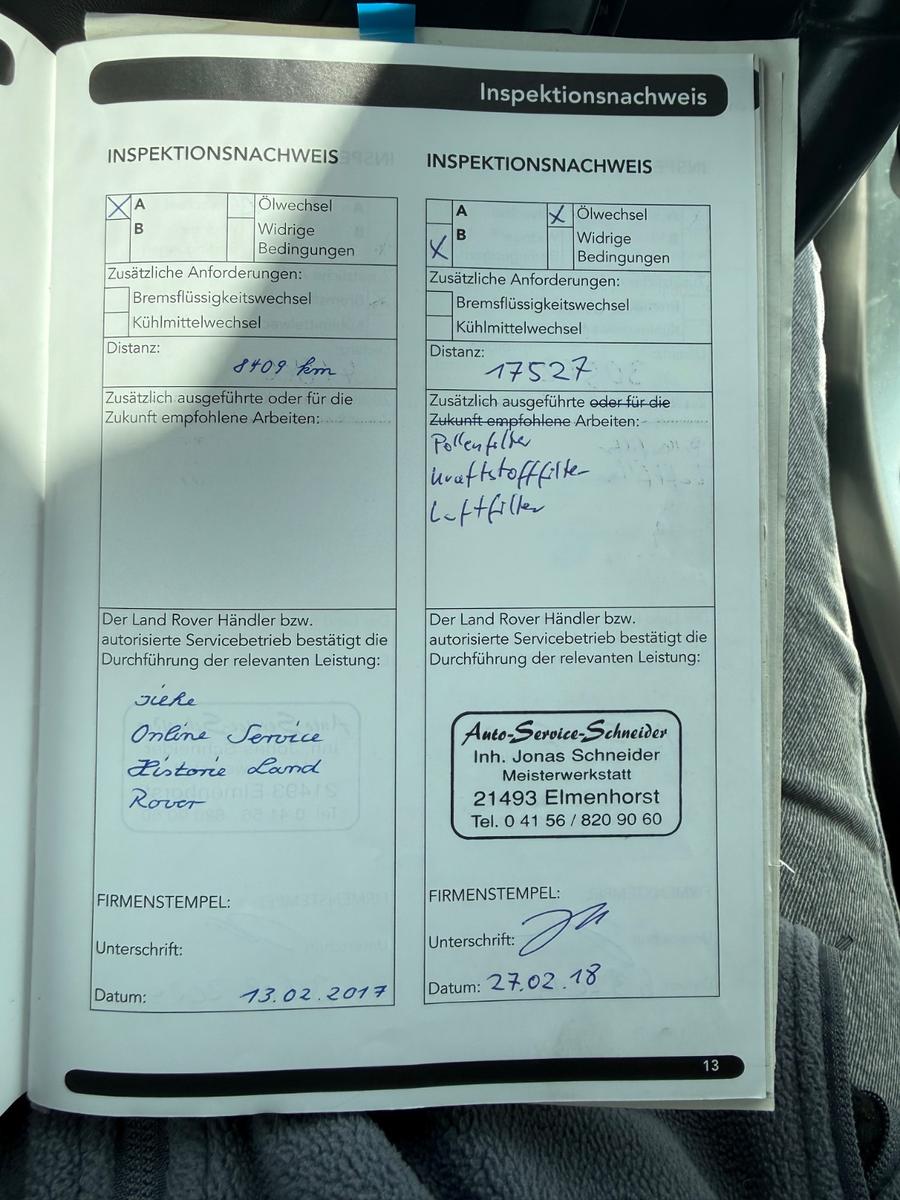 Inspektionsnachweis
INSPEKTIONSNACHWEIS
A
Ölwechsel
B
Widrige
Bedingungen
Zusätzliche Anforderungen:
Bremsflüssigkeitswechsel
Kühlmittelwechsel
Distanz:
8409 km
Zusätzlich ausgeführte oder für die
Zukunft empfohlene Arbeiten:
Der Land Rover Händler bzw.
autorisierte Servicebetrieb bestätigt die
Durchführung der relevanten Leistung:
siehe
Online Service
Historie Land
Rover
FIRMENSTEMPEL:
Unterschrift:
Datum: 13.02.2017
INSPEKTIONSNACHWEIS
A
Ölwechsel
B
Widrige
Bedingungen
Zusätzliche Anforderungen:
Bremsflüssigkeitswechsel
Kühlmittelwechsel
Distanz:
17527
Zusätzlich ausgeführte oder für die
Zukunft empfohlene Arbeiten:
Pollenfilter
Kraftstofffilter
Luftfilter
Der Land Rover Händler bzw.
autorisierte Servicebetrieb bestätigt die
Durchführung der relevanten Leistung:
Auto-Service-Schneider
Inh. Jonas Schneider
Meisterwerkstatt
21493 Elmenhorst
Tel. 0 41 56 / 820 90 60
FIRMENSTEMPEL:
Unterschrift:
Datum: 27.02.18
13